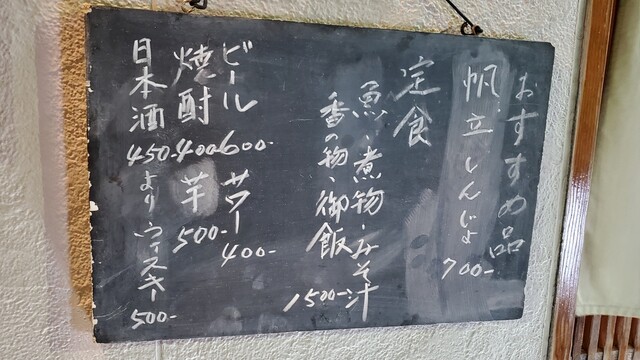 おすすめ品
帆立しんじょ 700-
定食
魚・煮物・みそ汁
香の物・御飯 1500-
ビール 600- サワー 400-
焼酎 400- 芋 500-
日本酒 450-より ウィスキー 500-